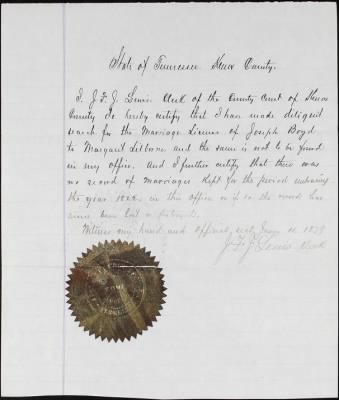 State of Tennessee Knox County.
I. J. F. J. Lewis. Clerk of the County Court of Knox
County do hereby certify that I have made deligent
search for the Marriage License of Joseph Boyd
to Margaret and the same is not to be found
in my office. And I further certify that there was
no record of marriages Kept for the period embracing
the year in this office or if so the records has
since been lost or
Witness my hand and official seal, 1879
J F J Lewis Clerk